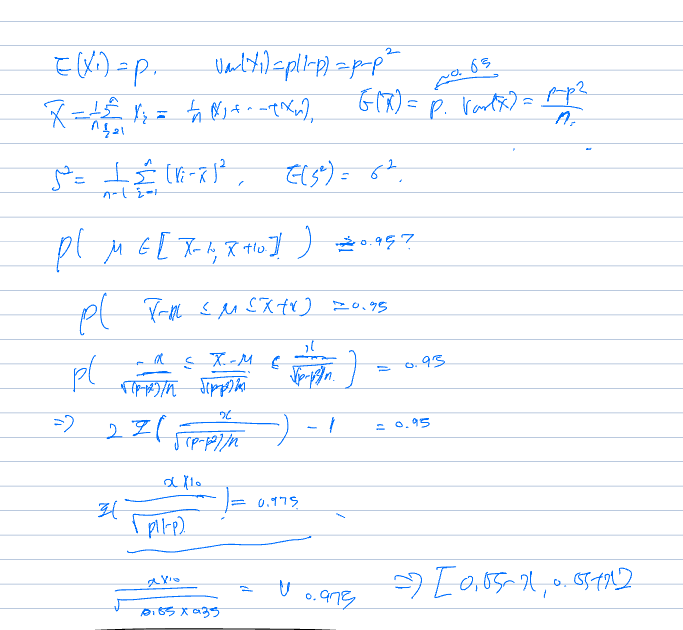 E(Xi) = p, Var(Xi) = p(1-p) = p-p²
X̄ = 1/n Σ_{i=1}^{n} Xi = 1/n (X1 + ... + Xn), E(X̄) = p. Var(X̄) = (p-p²)/n. 0.65
S² = 1/(n-1) Σ_{i=1}^{n} (Xi - X̄)², E(S²) = σ².
P( μ ∈ [X̄-10, X̄+10] ) = 0.95?
P( X̄-x ≤ μ ≤ X̄+x ) = 0.95
P( -x/√((p-p²)/n) ≤ (X̄-μ)/√((p-p²)/n) ≤ x/√((p-p²)/n) ) = 0.95
⇒ 2Φ( x/√((p-p²)/n) ) - 1 = 0.95
Φ( x×10/√(p(1-p)) ) = 0.975
x×10/√(0.65×0.35) = U 0.975 ⇒ [0.65-x, 0.65+x]